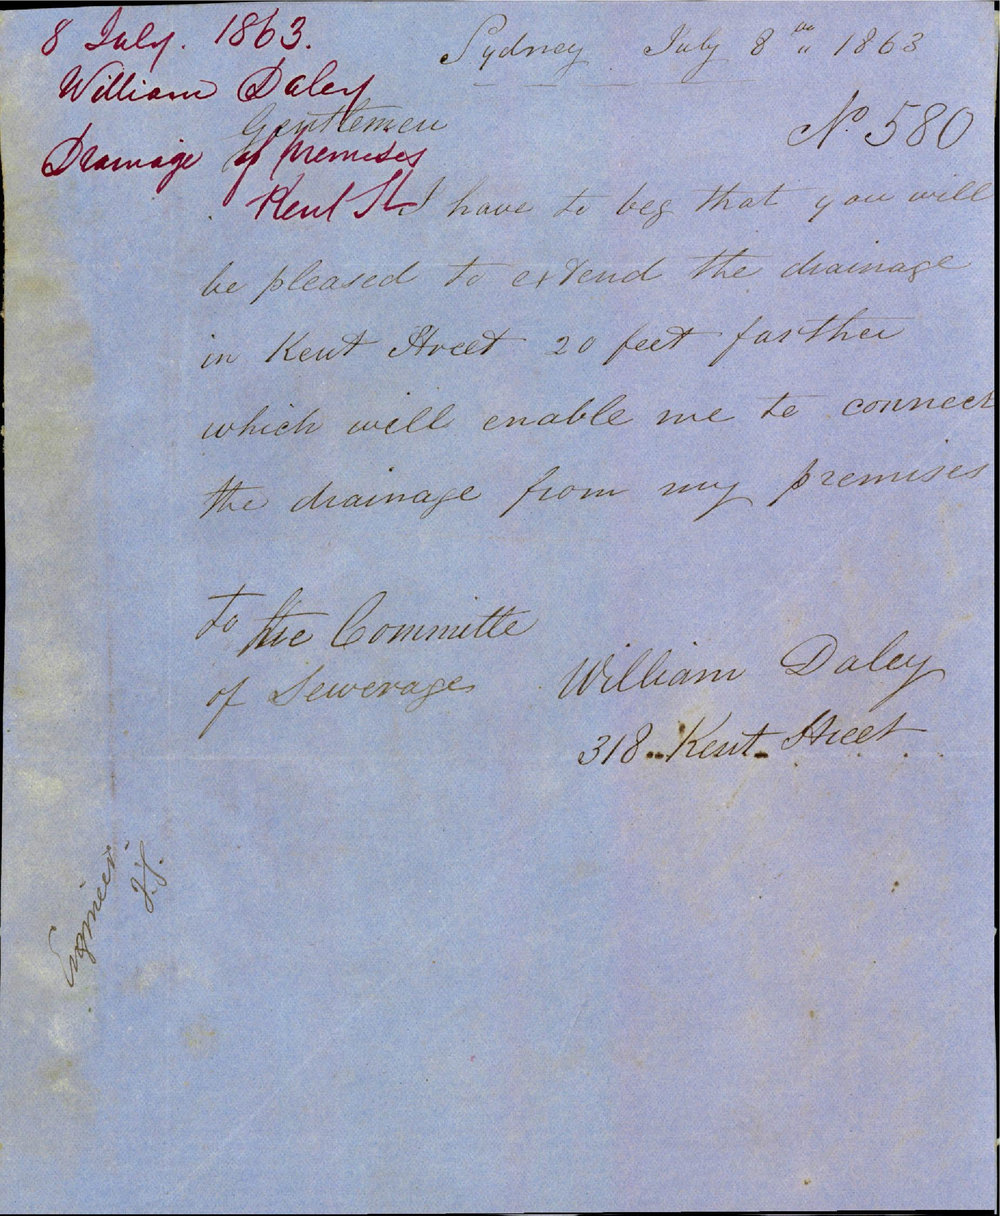 8 July. 1863.
William Daley
Drainage of premises
Kent St
Sydney July 8th 1863
No 580
Gentlemen
I have to beg that you will
be pleased to extend the drainage
in Kent Street 20 feet farther
which will enable me to connect
the drainage from my premises
To the Committe
of Sewerage
William Daley
318 Kent Street
Engineer